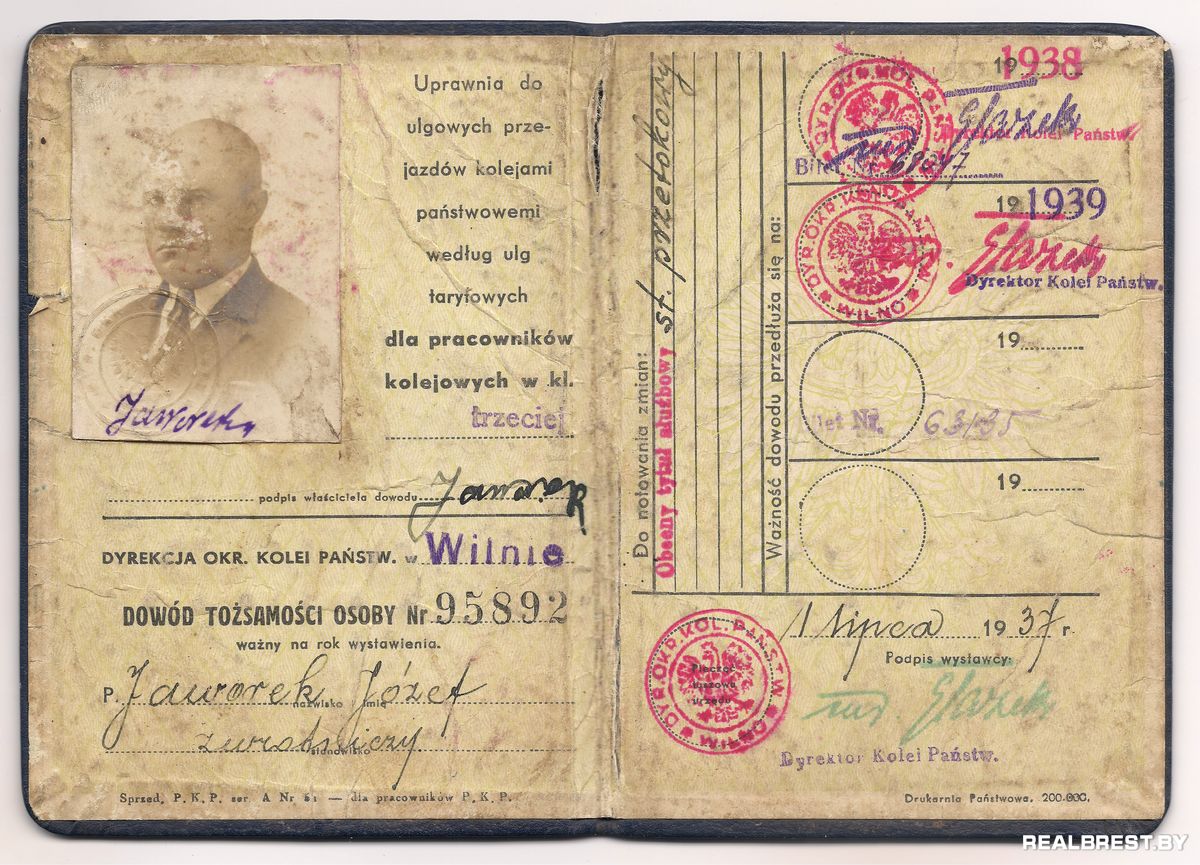 Uprawnia do
ulgowych prze-
jazdów kolejami
państwowemi
według ulg
taryfowych
dla pracowników
kolejowych w kl.
trzeciej
Jaworek
podpis właściciela dowodu Jaworek
DYREKCJA OKR. KOLEI PAŃSTW. w Wilnie
DOWÓD TOŻSAMOŚCI OSOBY Nr 95892
ważny na rok wystawienia.
P. Jaworek Józef
nazwisko imię
zwrotniczy
stanowisko
Sprzed. P. K. P. ser. A Nr — dla pracowników P. K. P.
Do notowania zmian:
Obecny tytuł służbowy st. przetokowy
Ważność dowodu przedłuża się na:
1938
Dyrektor Kolei Państw.
Bilet Nr.
DYR. OKR. KOL. PAŃSTW. WILNO
1939
Dyrektor Kolei Państw.
DYR. OKR. KOL. PAŃSTW. WILNO
19
Bilet Nr. 63135
19
1 lipca 1937 r.
Podpis wystawcy:
DYR. OKR. KOL. PAŃSTW. WILNO
Dyrektor Kolei Państw.
Drukarnia Państwowa. 200.000.
REALBREST.BY